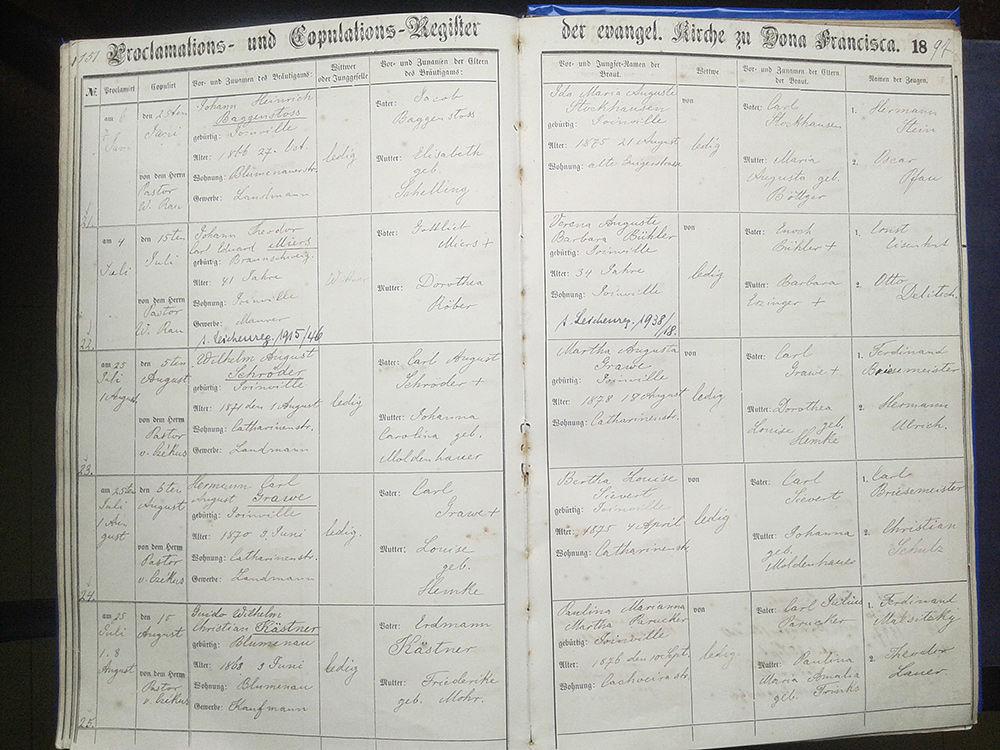 151
Proclamations- und Copulations-Register
der evangel. Kirche zu Dona Francisca. 1897
№
Proclamirt
Copulirt
Vor- und Zunamen des Bräutigams:
Wittwer oder Junggeselle
Vor- und Zunamen der Eltern des Bräutigams:
Vor- und Jungfer-Namen der Braut.
Wittwe
Vor- und Zunamen der Eltern der Braut.
Namen der Zeugen.
am 6
Juni
den 25ten
Juni
von dem Herrn
Pastor
W. Rau
Johann Heinrich
Baggenstoss
gebürtig: Joinville
Alter: 1866 27. Oct.
Wohnung: Blumenauerstr.
Gewerbe: Landmann
ledig
Vater: Jacob
Baggenstoss
Mutter: Elisabeth
geb.
Schelling
Ida Maria Auguste
Stockhausen
gebürtig: Joinville
Alter: 1875 21 August
Wohnung: alte
von
ledig
Vater: Carl
Stockhausen
Mutter: Maria
Augusta geb.
Böttger
1. Hermann
Stein
2. Oscar
Pfau
21.
am 4
Juli
den 15ten
Juli
von dem Herrn
Pastor
W. Rau
22.
Johann Theodor
Carl Eduard Miers
gebürtig: Braunschweig.
Alter: 41 Jahre
Wohnung: Joinville
Gewerbe: Maurer
s. Leichenreg. 1915/46
Wittwer
Vater: Gottlieb
Miers +
Mutter: Dorothea
Röber
Verena Auguste
Barbara Bühler
gebürtig: Joinville
Alter: 34 Jahre
Wohnung: Joinville
s. Leichenreg. 1938/18.
von
ledig
Vater: Enoch
Bühler +
Mutter: Barbara
Ezinger +
1. Ernst
Eisenhut
2. Otto
Delitsch.
am 25
Juli
1 August
den 5ten
August
von dem Herrn
Pastor
23.
Wilhelm August
Schröder
gebürtig: Joinville
Alter: 1871 den 1 August
Wohnung: Catharinenstr.
Gewerbe: Landmann
ledig
Vater: Carl August
Schröder +
Mutter: Johanna
Carolina geb.
Moldenhauer
Martha Augusta
Grawe
gebürtig: Joinville
Alter: 1878 18 August
Wohnung: Catharinenstr.
von
ledig
Vater: Carl
Grawe +
Mutter: Dorothea
Louise geb.
Hemke
1. Ferdinand
Briesemeister
2. Hermann
Ulrich.
am 25ten
Juli
1 Au
gust
den 5ten
August
von dem Herrn
Pastor
24.
Hermann Carl
August Grawe
gebürtig: Joinville
Alter: 1870 3. Juni
Wohnung: Catharinenstr.
Gewerbe: Landmann
ledig.
Vater: Carl
Grawe +
Mutter: Louise
geb.
Hemke
Bertha Louise
Sievert
gebürtig: Joinville
Alter: 1875 4 April
Wohnung: Catharinenstr.
von
ledig
Vater: Carl
Sievert
Mutter: Johanna
geb.
Moldenhauer
1. Carl
Briesemeister
2. Christian
Schulz
am 25
Juli
1. 8
August
den 10
August
von dem Herrn
Pastor
25.
Guido Wilhelm
Christian Kästner
gebürtig: Blumenau
Alter: 1868 3 Juni
Wohnung: Blumenau
Gewerbe: Kaufmann
ledig
Vater: Erdmann
Kästner
Mutter: Friederike
geb. Mohr.
Paulina Marianna
Martha Parucker
gebürtig: Joinville
Alter: 1876 den 10 Sept.
Wohnung: Cachoeirastr.
von
ledig.
Vater: Carl Julius
Parucker
Mutter: Paulina
Maria Amalia
geb. Trinks
1. Ferdinand
2. Theodor
Lauer.